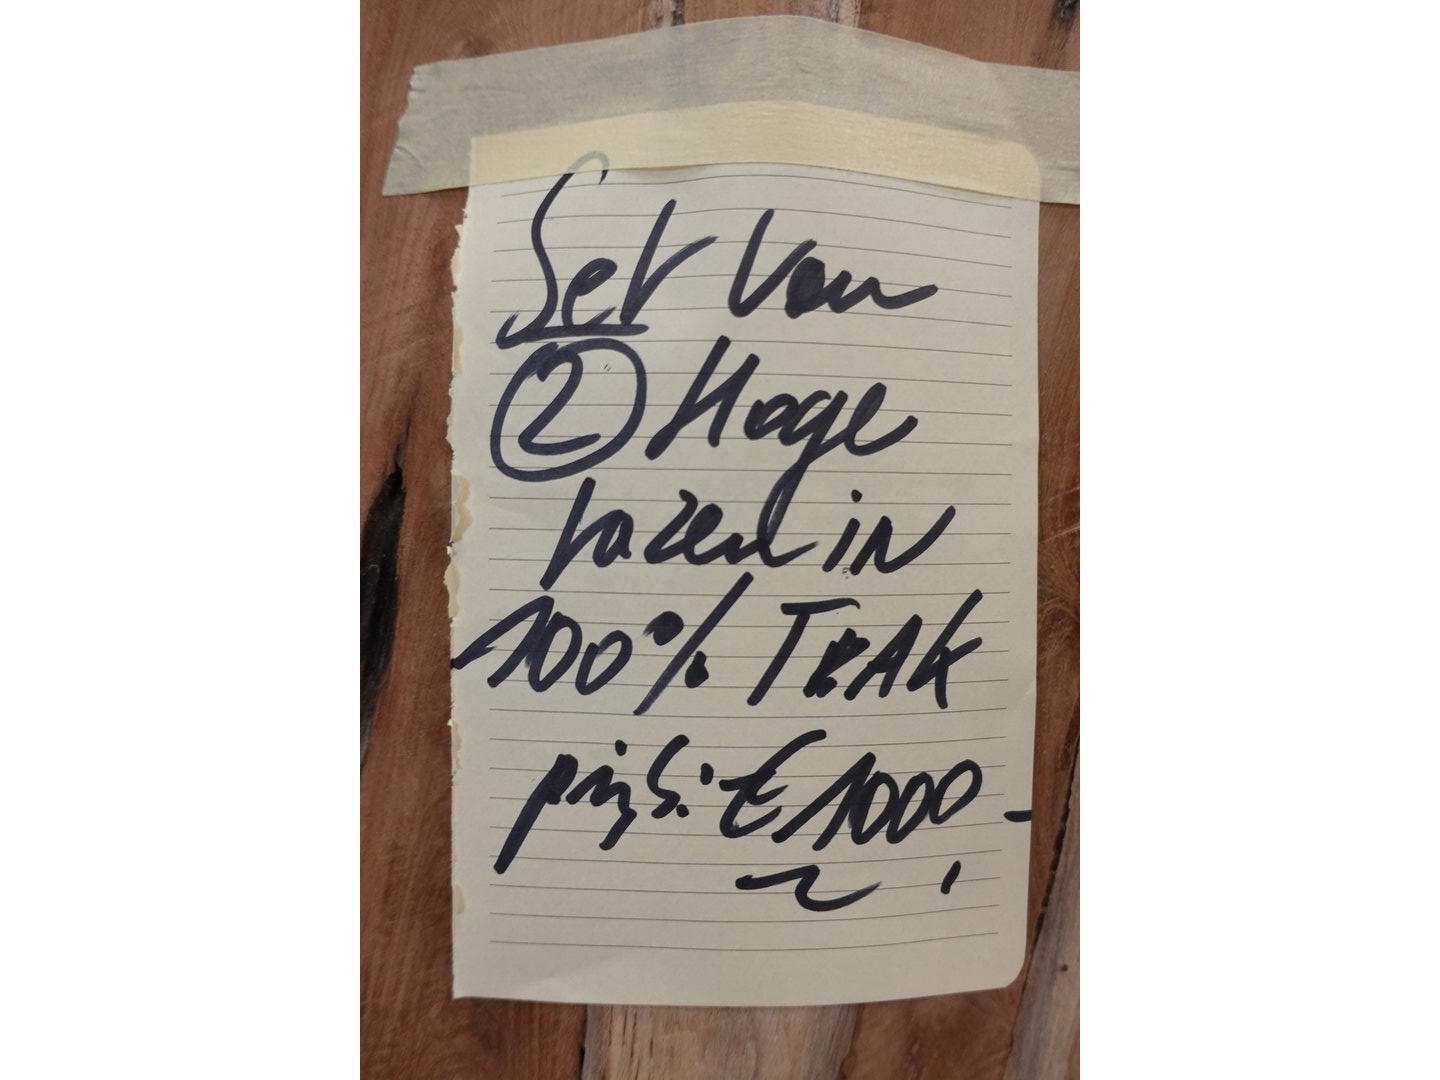 Set van
2 Hoge
vazen in
100% TEAK
prijs: € 1000,-